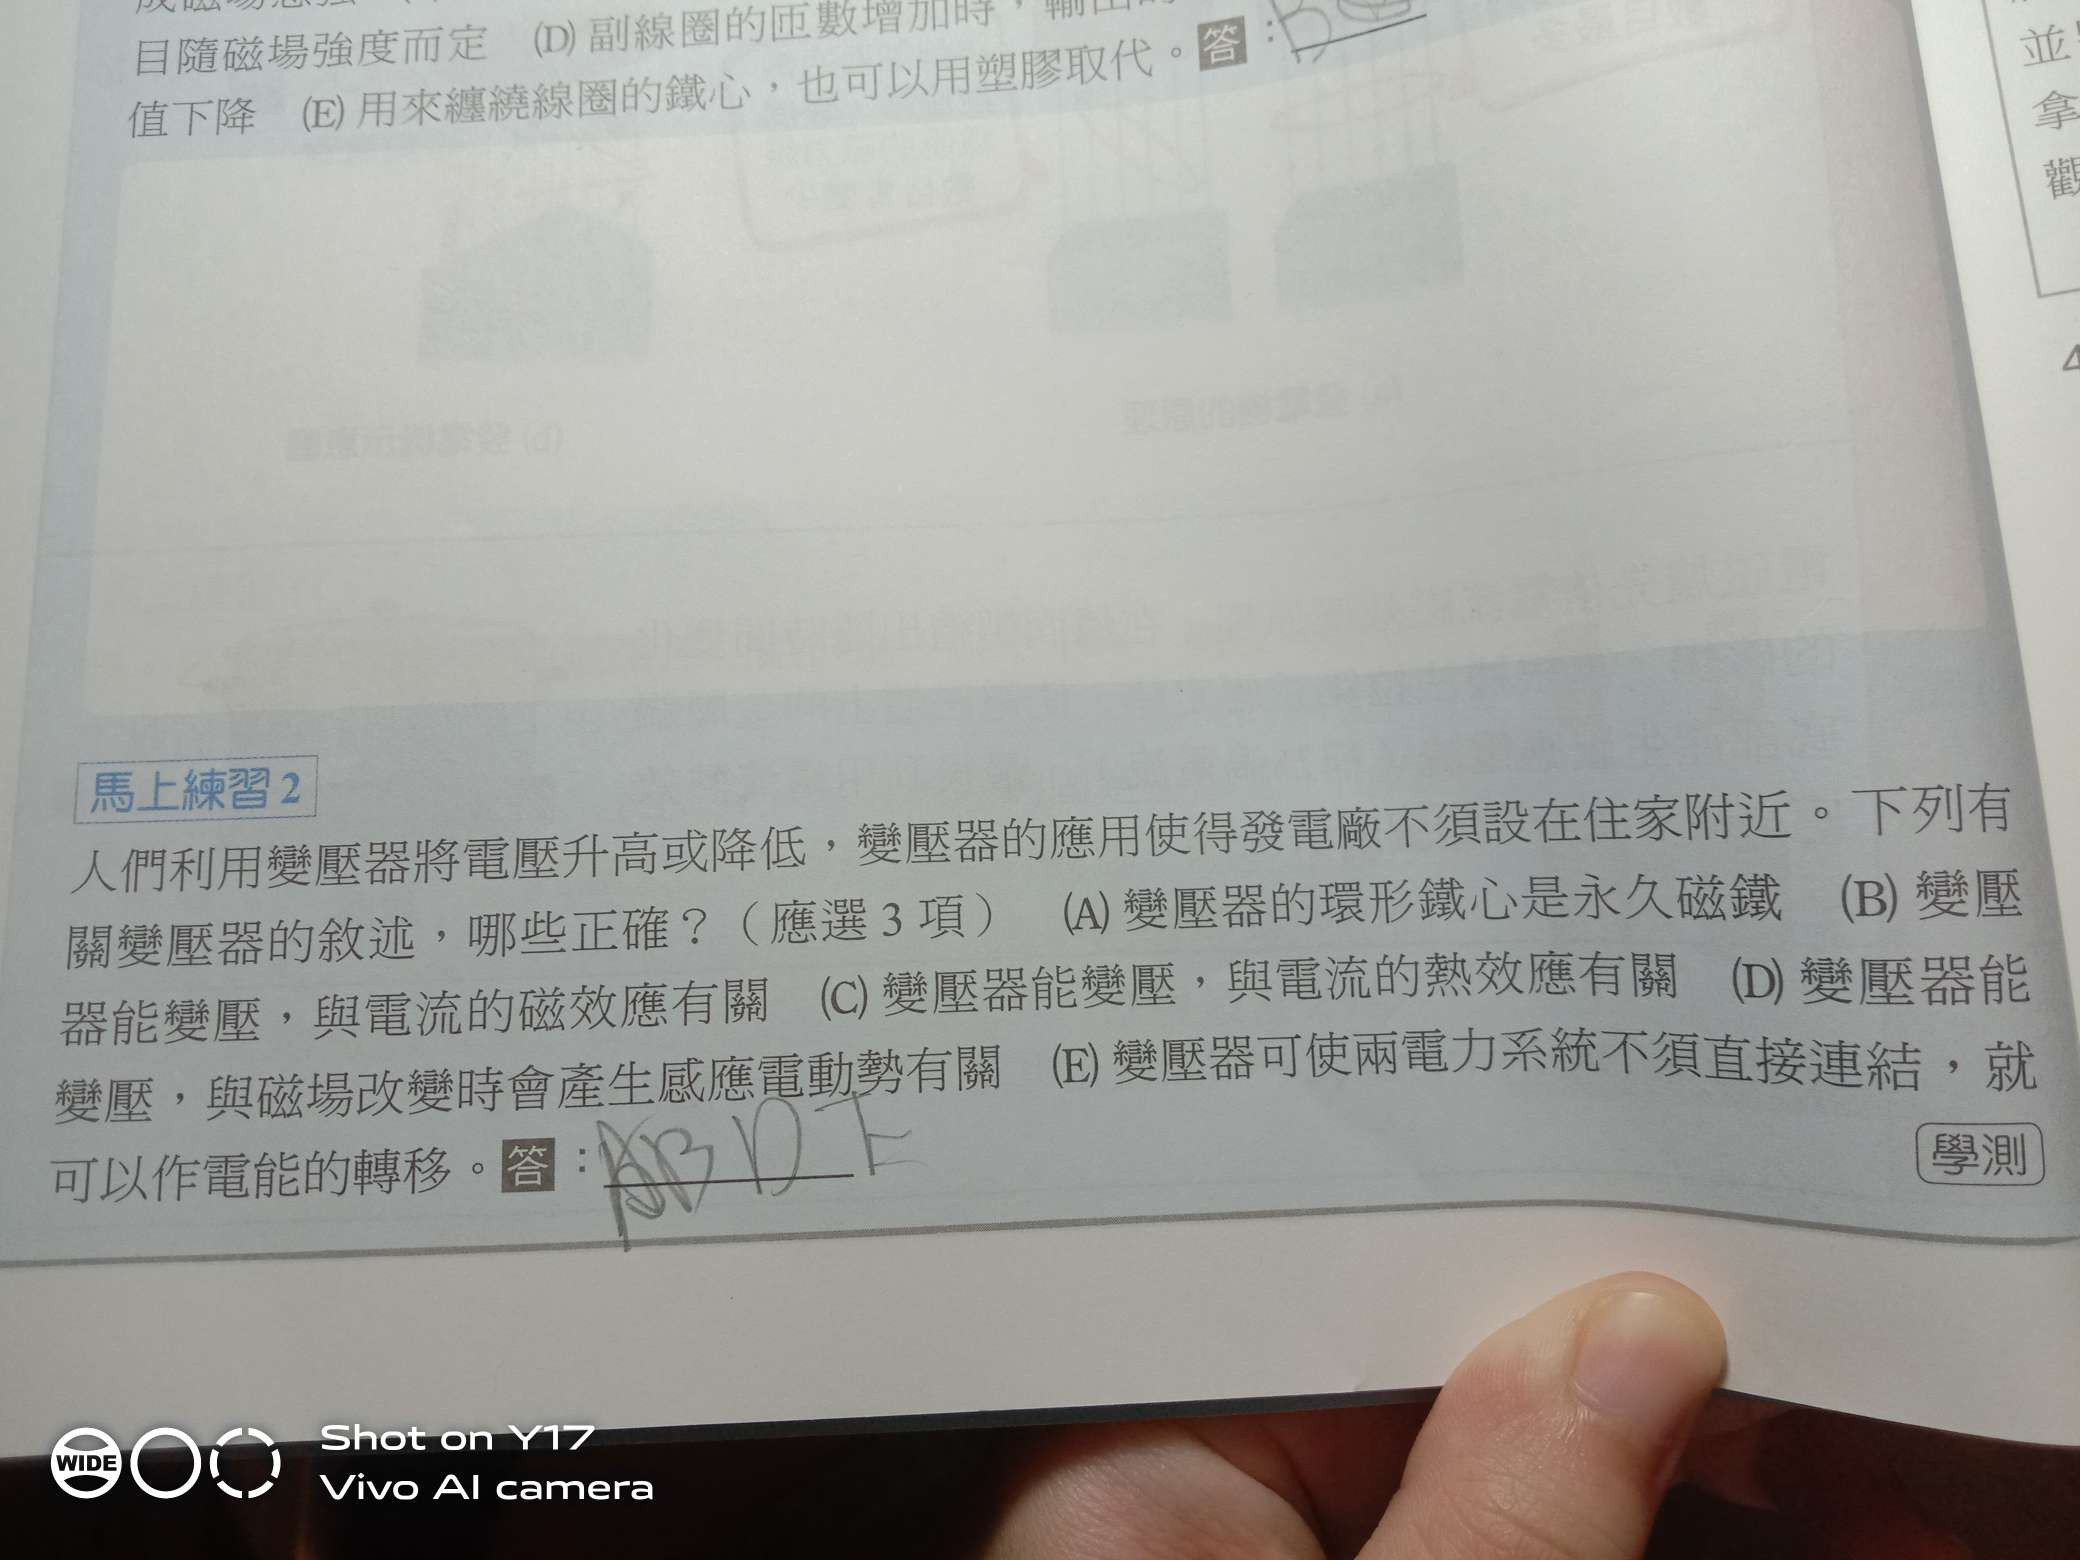 目隨磁場強度而定 (D) 副線圈的匝數增加時，輸出的
值下降 (E) 用來纏繞線圈的鐵心，也可以用塑膠取代。答：
並
拿
觀
馬上練習 2
人們利用變壓器將電壓升高或降低，變壓器的應用使得發電廠不須設在住家附近。下列有
關變壓器的敘述，哪些正確？（應選 3 項） (A) 變壓器的環形鐵心是永久磁鐵 (B) 變壓
器能變壓，與電流的磁效應有關 (C) 變壓器能變壓，與電流的熱效應有關 (D) 變壓器能
變壓，與磁場改變時會產生感應電動勢有關 (E) 變壓器可使兩電力系統不須直接連結，就
可以作電能的轉移。答：B D E
學測
WIDE
Shot on Y17
Vivo AI camera